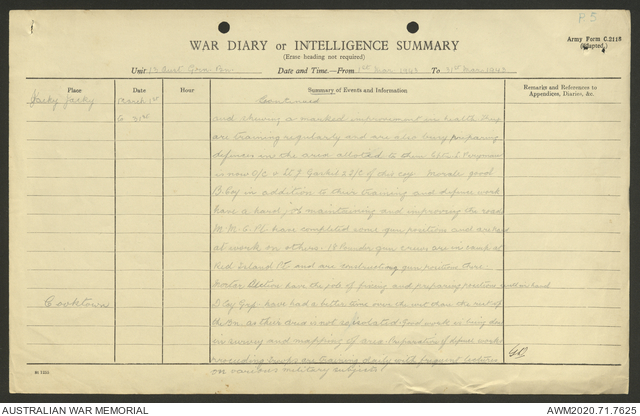 P.5
Army Form C.2118
(Adapted.)
WAR DIARY or INTELLIGENCE SUMMARY
(Erase heading not required)
Unit 13 Aust Grn Bn. Date and Time.—From 1st Mar 1943 To 31st Mar 1943
Place Date Hour Summary of Events and Information Remarks and References to
Appendices, Diaries, &c.
Jacky Jacky March 1st Continued
to 31st and showing a marked improvement in health. They
are training regularly and are also busy preparing
defences in the area allotted to them.
is now O/C & Lt J 2 I/C of this coy. Morale good
B Coy in addition to their training and defence work
have a hand in maintaining and improving the road
M.M.G. Pl. have completed some gun positions and are hard
at work on others. 18 Pounder gun crews are in camp at
Red Island Pt. and are constructing gun positions there.
Mortar Section have the job of fixing and preparing positions
Cooktown D Coy Gp. have had a better time over the mth than the rest of
the Bn. as their area is not so isolated. Good work is being done
in survey and mapping of area. Preparation of defence works
proceeding. Troops are training daily with frequent lectures
on various military subjects.
AUSTRALIAN WAR MEMORIAL
AWM2020.71.7625